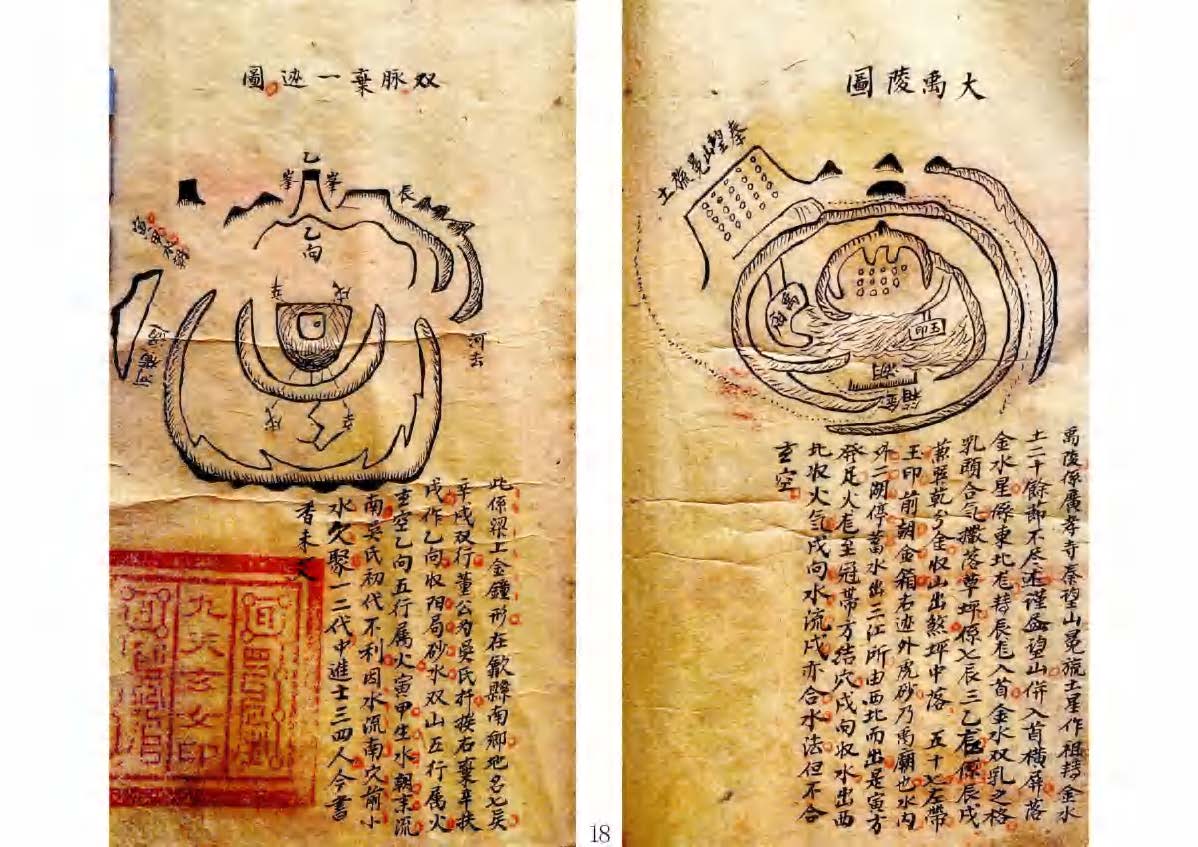 大禹陵圖
秦望山冕旒土
禹廟
玉印
禹陵係廣孝寺秦望山冕旒土星作祖轉金水
土二十餘節不尽述謹孟望山併入首橫屏落
金水星係東北龙轉辰龙入首金水双乳之格
乳頭合气撒落草坪係乙辰三乙右係辰戌
兼巽乾分金收山出煞坪中落 五十七左帶
玉印前朝金箱右迹外虎砂乃禹廟也水内
外二湖停蓄水出三江所由西北而出是寅方
發足火龙至冠帶方結穴戌向收水出西
北收火气戌向水流戌亦合水法但不合
玄空
双脉棄一迹圖
乙
峯
峯
辰
乙向
辛
戌
河去
辛
戌
此係梁上金鐘形在歙縣南鄉地名七吳
辛戌双行董公为吳氏扦挨右棄辛扶
戌作乙向收陽局砂水双山五行属火
玄空乙向五行属火寅甲生水朝末流
南吳氏初代不利因水流南穴前小
水久聚一二代中進士三四人今書
香未艾
九天玄女印
18